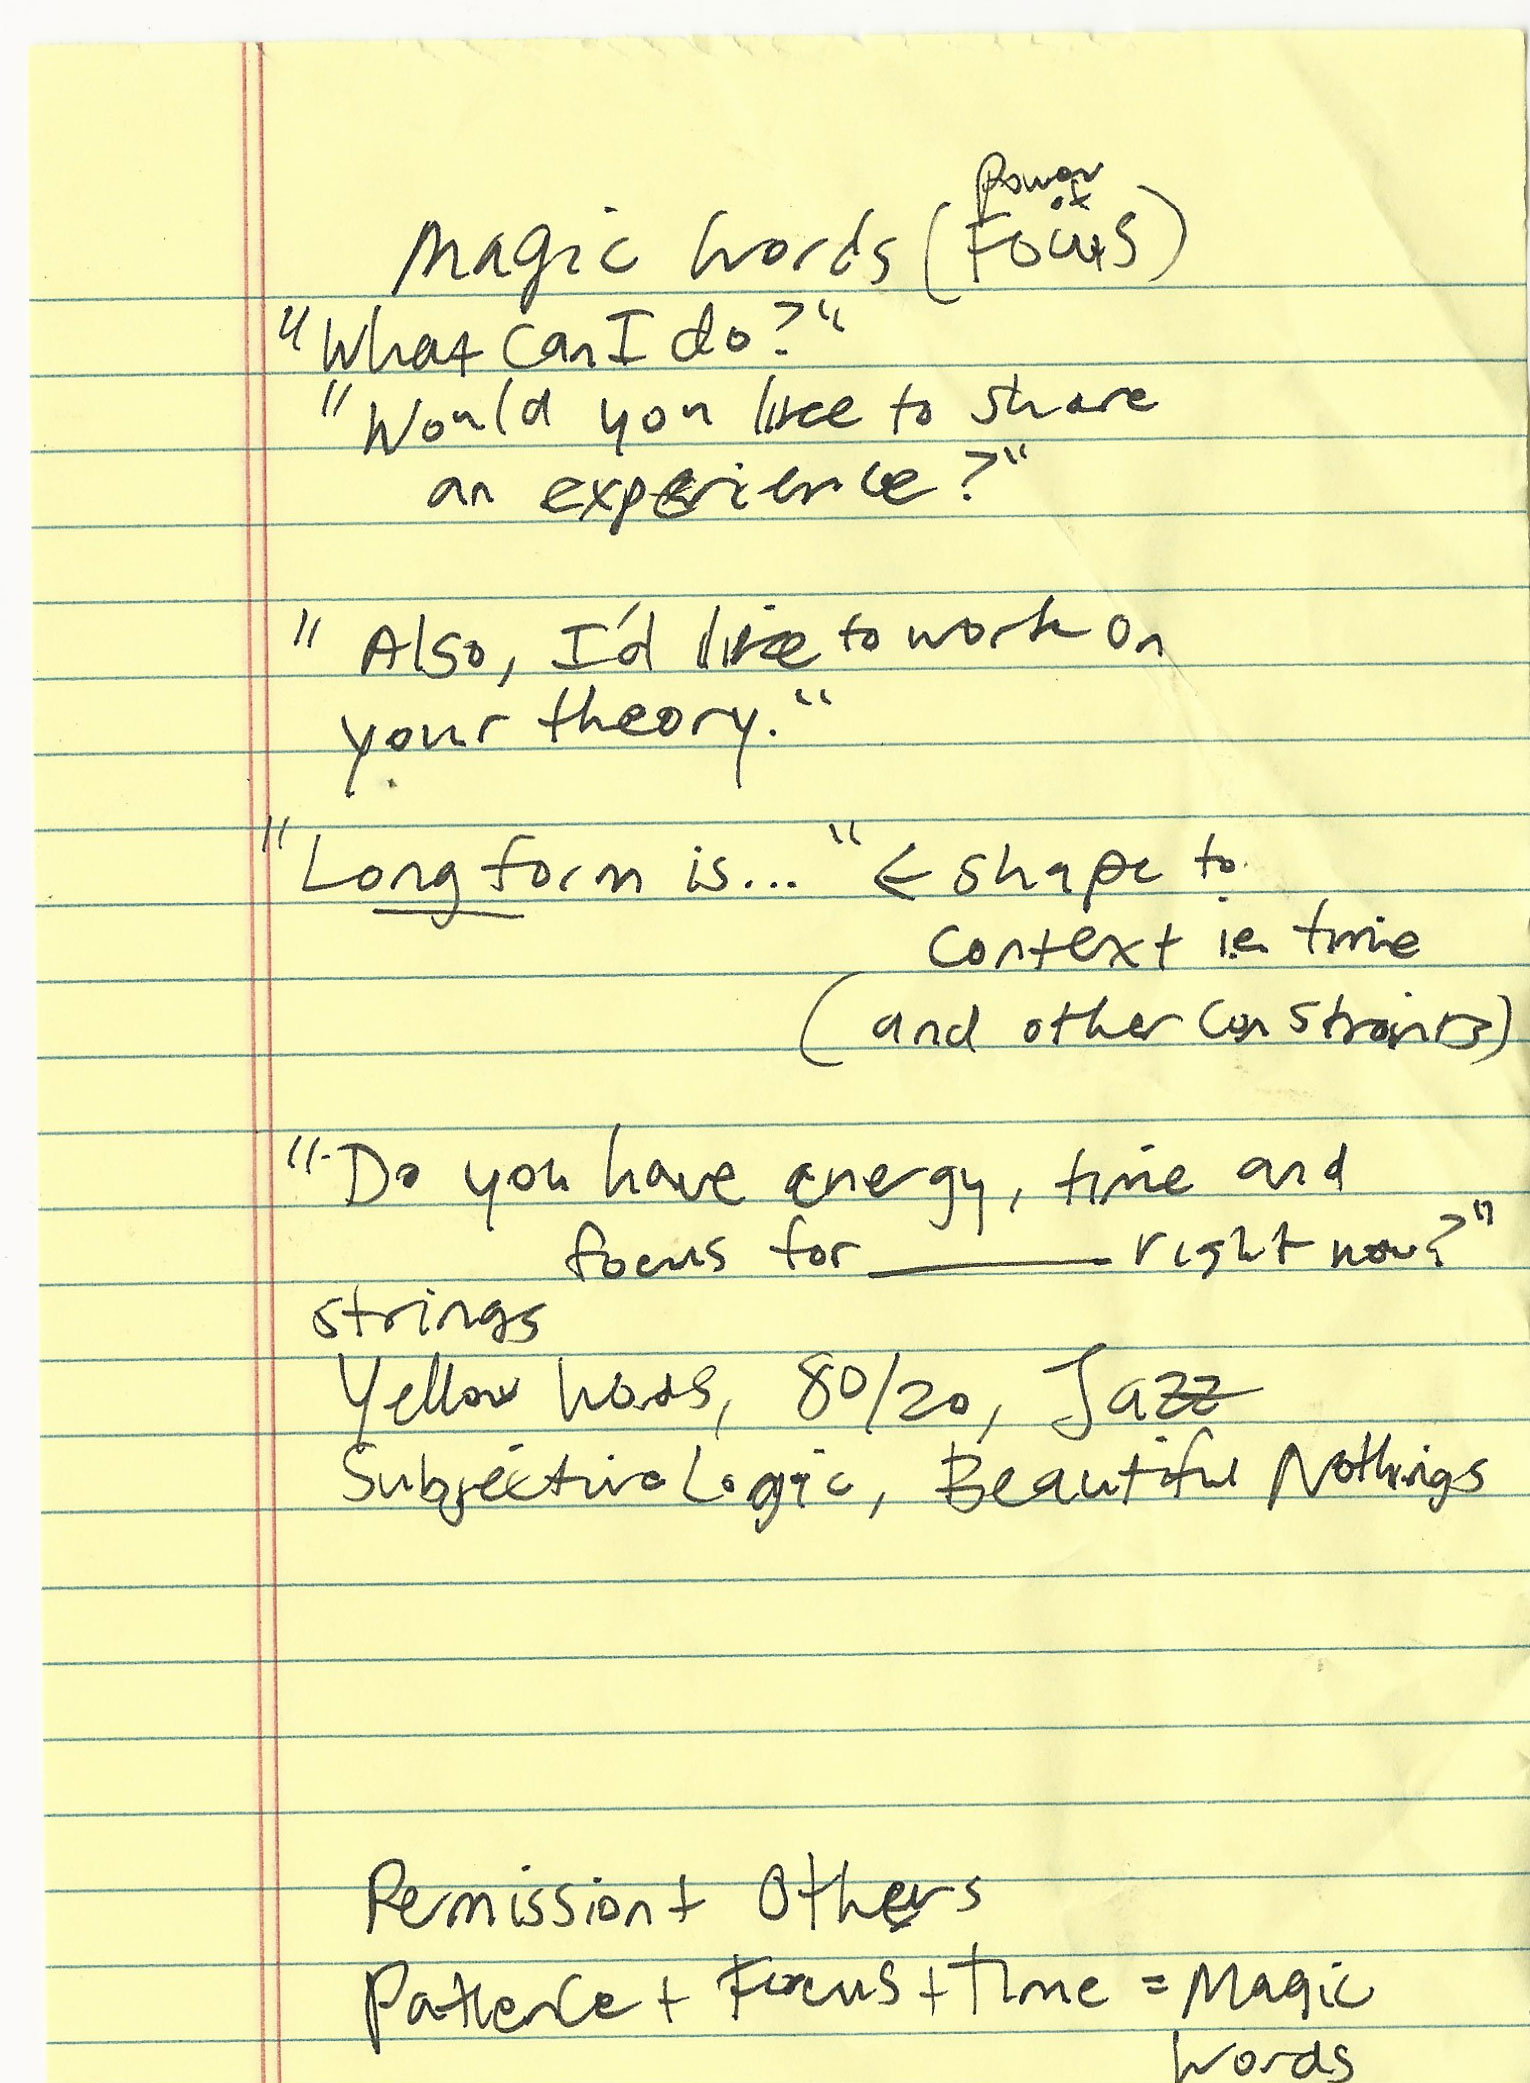 Power
of
Magic Words (Focus)
"What Can I do?"
"Would you like to share
an experience?"
"Also, I'd like to work on
your theory."
"Long form is..." ← shape to
context i.e. time
(and other constraints)
"Do you have energy, time and
focus for ______ right now?"
strings
Yellow, 80/20, Jazz
Subjective Logic, Beautiful Nothings
Permission + Others
Patience + Focus + Time = Magic
Words